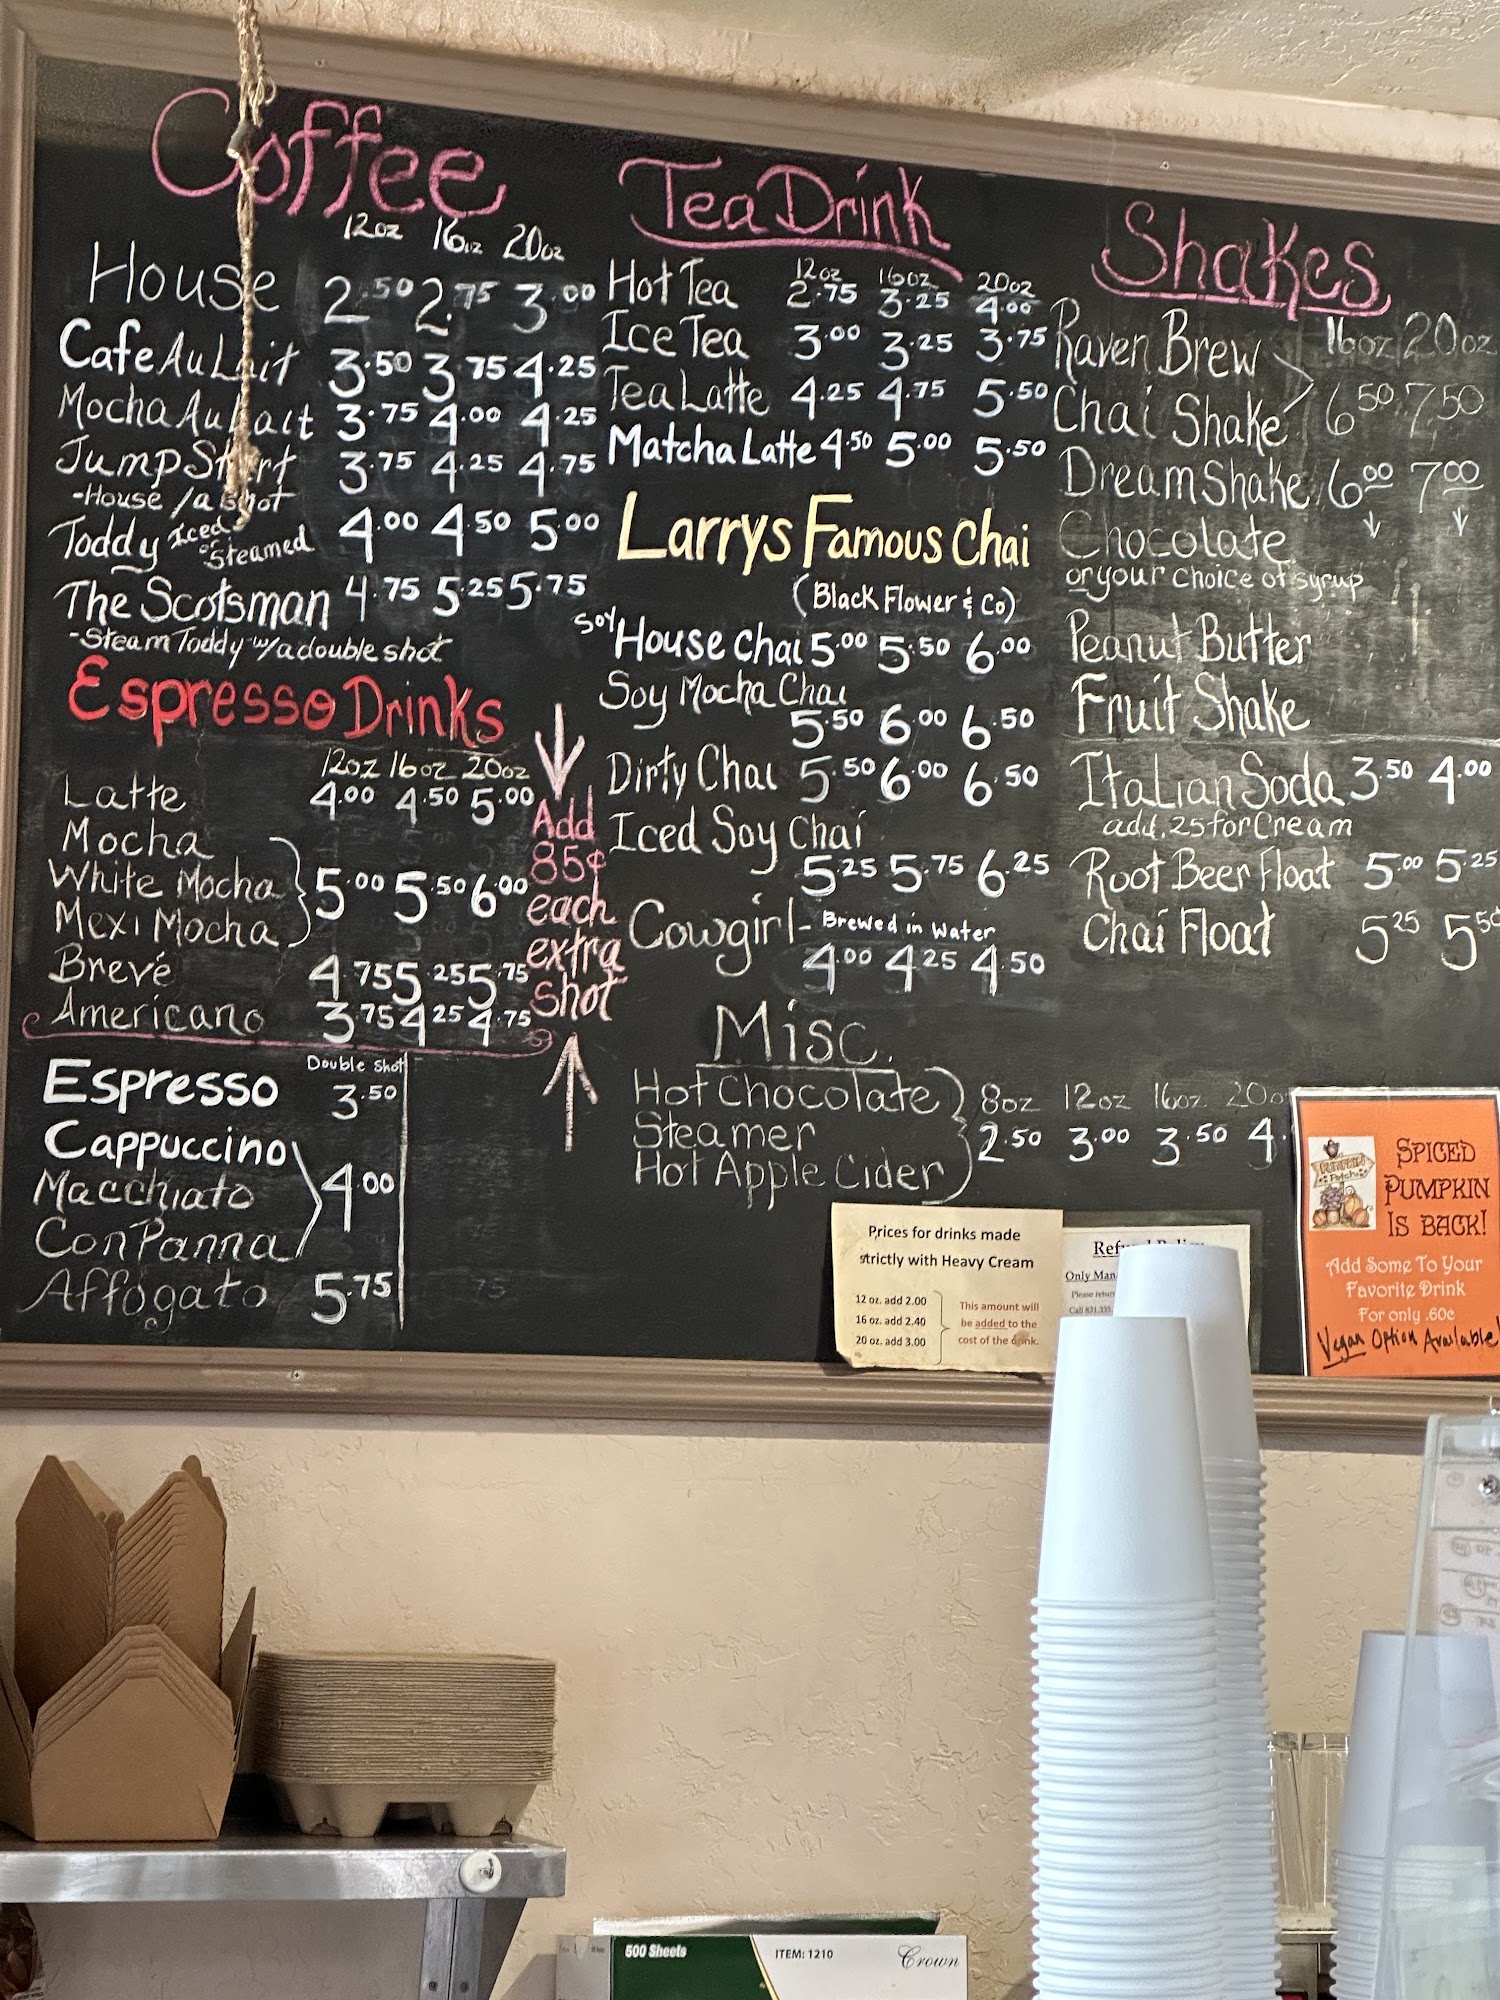 Coffee
12oz 16oz 20oz
House 2.50 2.75 3.00
Cafe Au Lait 3.50 3.75 4.25
Mocha Au Lait 3.75 4.00 4.25
Jump Start 3.75 4.25 4.75
-House /a shot
Toddy Iced or Steamed 4.00 4.50 5.00
The Scotsman 4.75 5.25 5.75
-Steam Toddy w/a double shot
Espresso Drinks
12oz 16oz 20oz
Latte 4.00 4.50 5.00
Mocha
White Mocha 5.00 5.50 6.00
Mexi Mocha
Brevé 4.75 5.25 5.75
Americano 3.75 4.25 4.75
Add
85¢
each
extra
shot
Double Shot
Espresso 3.50
Cappuccino
Macchiato 4.00
Con Panna
Affogato 5.75
75
Tea Drink
12oz 16oz 20oz
Hot Tea 2.75 3.25 4.00
Ice Tea 3.00 3.25 3.75
Tea Latte 4.25 4.75 5.50
Matcha Latte 4.50 5.00 5.50
Larrys Famous Chai
(Black Flower & Co)
Soy House Chai 5.00 5.50 6.00
Soy Mocha Chai
5.50 6.00 6.50
Dirty Chai 5.50 6.00 6.50
Iced Soy Chai
5.25 5.75 6.25
Cowgirl - Brewed in Water
4.00 4.25 4.50
Misc.
Hot Chocolate 8oz 12oz 16oz 20oz
Steamer 2.50 3.00 3.50 4.
Hot Apple Cider
Shakes
16oz 20oz
Raven Brew
Chai Shake 6.50 7.50
Dream Shake 6.00 7.00
Chocolate
or your choice of syrup
Peanut Butter
Fruit Shake
Italian Soda 3.50 4.00
add .25 for Cream
Root Beer Float 5.00 5.25
Chai Float 5.25 5.50
Prices for drinks made
strictly with Heavy Cream
12 oz. add 2.00
16 oz. add 2.40
20 oz. add 3.00
This amount will
be added to the
cost of the drink.
Refund Policy
Only
Please
Call 831.335.
Pumpkin
Patch
Spiced
Pumpkin
Is Back!
Add Some To Your
Favorite Drink
For only .60¢
Vegan Option Available!
500 Sheets
ITEM: 1210
Crown